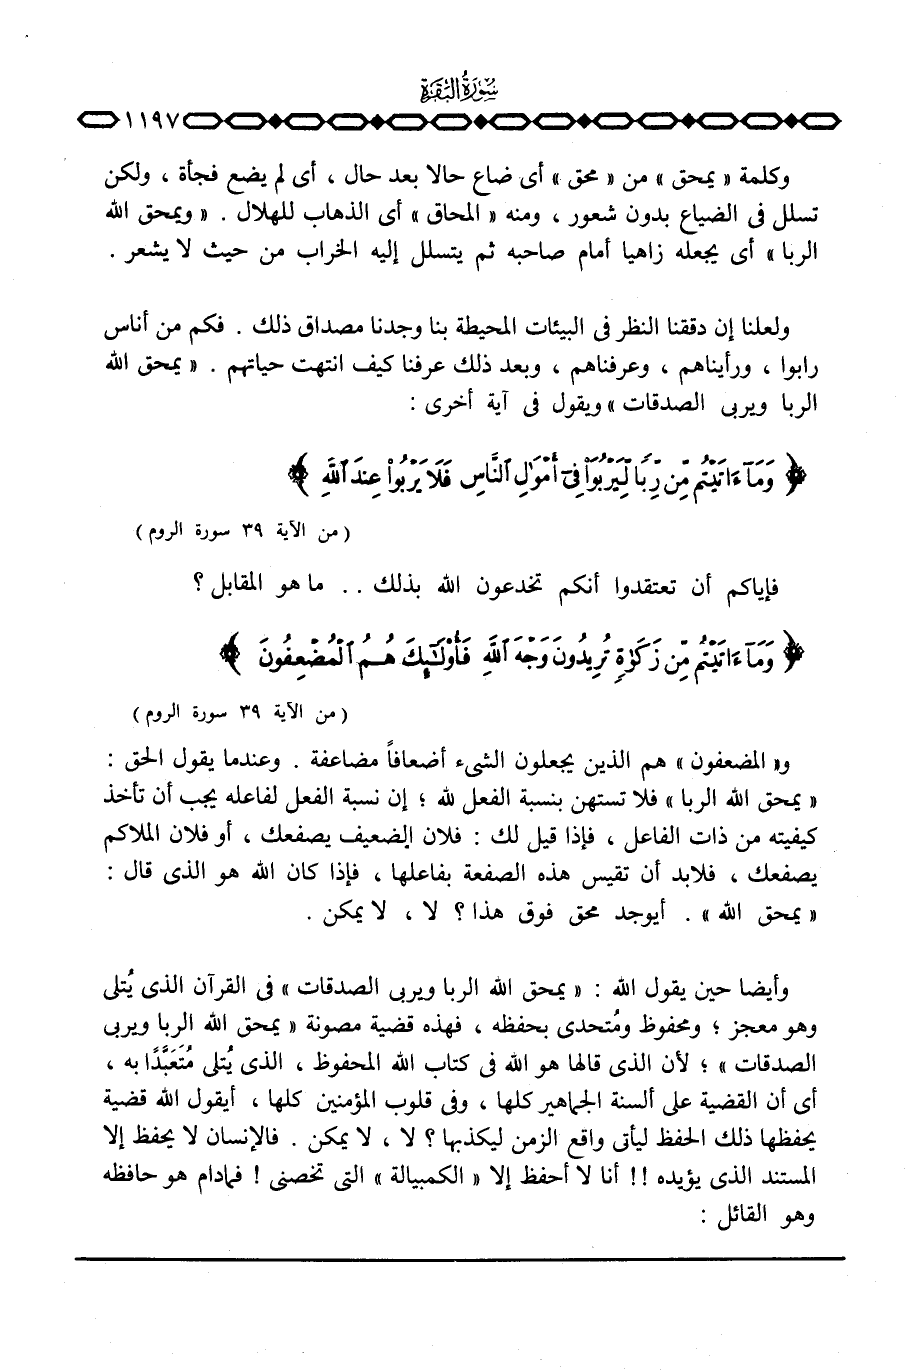 سورة البقرة
١١٩٧
وكلمة « يمحق » من « محق » أى ضاع حالا بعد حال ، أى لم يضع فجأة ، ولكن
تسلل فى الضياع بدون شعور ، ومنه « المحاق » أى الذهاب للهلال . « ويمحق الله
الربا » أى يجعله زاهيا أمام صاحبه ثم يتسلل إليه الخراب من حيث لا يشعر .
ولعلنا إن دققنا النظر فى البيئات المحيطة بنا وجدنا مصداق ذلك . فكم من أناس
رابوا ، ورأيناهم ، وعرفناهم ، وبعد ذلك عرفنا كيف انتهت حياتهم . « يمحق الله
الربا ويربى الصدقات » ويقول فى آية أخرى :
﴿ وَمَآ ءَاتَيْتُم مِّن رِّبًا لِّيَرْبُوَا۟ فِىٓ أَمْوَٰلِ ٱلنَّاسِ فَلَا يَرْبُوا۟ عِندَ ٱللَّهِ ﴾
( من الآية ٣٩ سورة الروم )
فإياكم أن تعتقدوا أنكم تخدعون الله بذلك . . ما هو المقابل ؟
﴿ وَمَآ ءَاتَيْتُم مِّن زَكَوٰةٍ تُرِيدُونَ وَجْهَ ٱللَّهِ فَأُو۟لَٰٓئِكَ هُمُ ٱلْمُضْعِفُونَ ﴾
( من الآية ٣٩ سورة الروم )
و« المضعفون » هم الذين يجعلون الشىء أضعافاً مضاعفة . وعندما يقول الحق :
« يمحق الله الربا » فلا تستهن بنسبة الفعل لله ؛ إن نسبة الفعل لفاعله يجب أن تأخذ
كيفيته من ذات الفاعل ، فإذا قيل لك : فلان الضعيف يصفعك ، أو فلان الملاكم
يصفعك ، فلابد أن تقيس هذه الصفعة بفاعلها ، فإذا كان الله هو الذى قال :
« يمحق الله » . أيوجد محق فوق هذا ؟ لا ، لا يمكن .
وأيضا حين يقول الله : « يمحق الله الربا ويربى الصدقات » فى القرآن الذى يُتلى
وهو معجز ؛ ومحفوظ ومُتحدى بحفظه ، فهذه قضية مصونة « يمحق الله الربا ويربى
الصدقات » ؛ لأن الذى قالها هو الله فى كتاب الله المحفوظ ، الذى يُتلى مُتَعَبَّدًا به ،
أى أن القضية على ألسنة الجماهير كلها ، وفى قلوب المؤمنين كلها ، أيقول الله قضية
يحفظها ذلك الحفظ ليأتى واقع الزمن ليكذبها ؟ لا ، لا يمكن . فالإنسان لا يحفظ إلا
المستند الذى يؤيده !! أنا لا أحفظ إلا « الكمبيالة » التى تخصنى ! فمادام هو حافظه
وهو القائل :